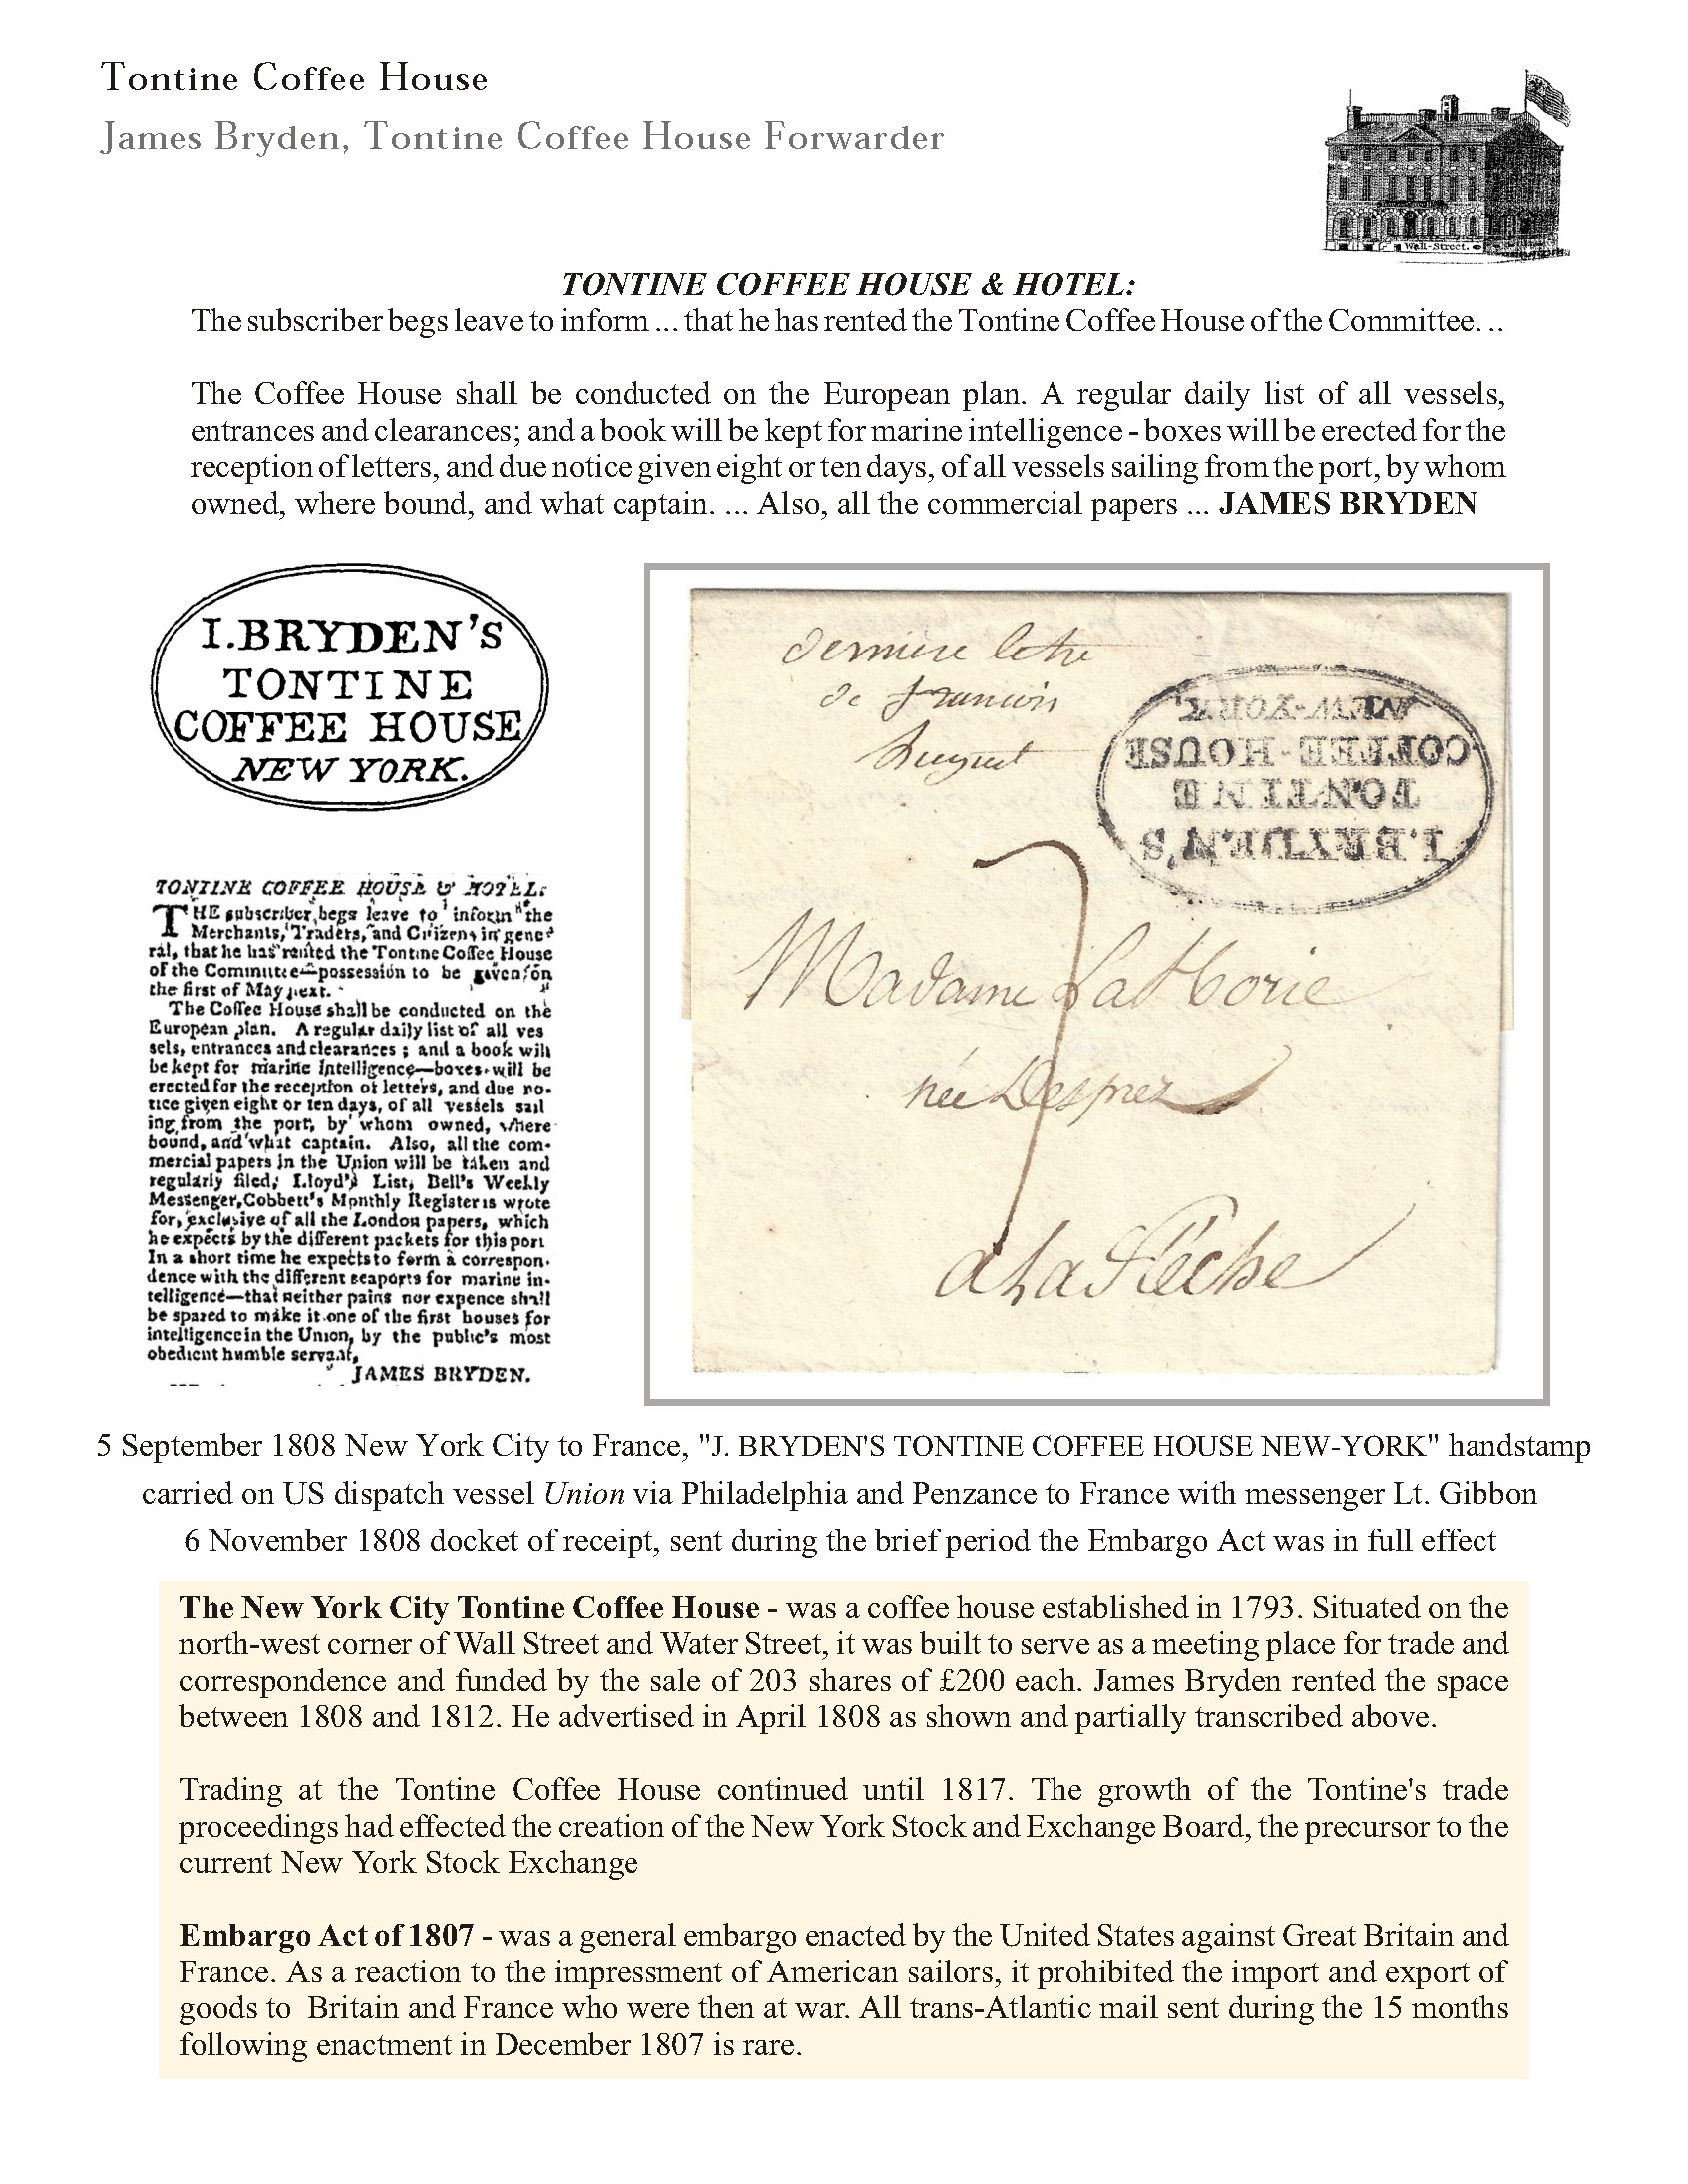 Tontine Coffee House
James Bryden, Tontine Coffee House Forwarder
Wall-Street.
TONTINE COFFEE HOUSE & HOTEL:
The subscriber begs leave to inform ... that he has rented the Tontine Coffee House of the Committee. ..
The Coffee House shall be conducted on the European plan. A regular daily list of all vessels,
entrances and clearances; and a book will be kept for marine intelligence - boxes will be erected for the
reception of letters, and due notice given eight or ten days, of all vessels sailing from the port, by whom
owned, where bound, and what captain. ... Also, all the commercial papers ... JAMES BRYDEN
I.BRYDEN'S
TONTINE
COFFEE HOUSE
NEW YORK.
TONTINE COFFEE HOUSE & HOTEL:
THE subscriber begs leave to inform the
Merchants, Traders, and Citizens in gene-
ral, that he has rented the Tontine Coffee House
of the Committee—possession to be given on
the first of May next.
The Coffee House shall be conducted on the
European plan. A regular daily list of all ves
sels, entrances and clearances ; and a book will
be kept for marine Intelligence—boxes will be
erected for the reception of letters, and due no-
tice given eight or ten days, of all vessels sail
ing from the port, by whom owned, where
bound, and what captain. Also, all the com-
mercial papers in the Union will be taken and
regularly filed; Lloyd's List, Bell's Weekly
Messenger, Cobbett's Monthly Register is wrote
for, exclusive of all the London papers, which
he expects by the different packets for this port
In a short time he expects to form a correspon-
dence with the different seaports for marine in-
telligence—that neither pains nor expence shall
be spared to make it one of the first houses for
intelligence in the Union, by the public's most
obedient humble servant,
JAMES BRYDEN.
derniere letre
de francois
Huguet
I.BRYDEN'S
TONTINE
COFFEE-HOUSE
NEW-YORK.
7
Madame LaHorie
née Desprez
a La fleche
5 September 1808 New York City to France, "J. BRYDEN'S TONTINE COFFEE HOUSE NEW-YORK" handstamp
carried on US dispatch vessel Union via Philadelphia and Penzance to France with messenger Lt. Gibbon
6 November 1808 docket of receipt, sent during the brief period the Embargo Act was in full effect
The New York City Tontine Coffee House - was a coffee house established in 1793. Situated on the
north-west corner of Wall Street and Water Street, it was built to serve as a meeting place for trade and
correspondence and funded by the sale of 203 shares of £200 each. James Bryden rented the space
between 1808 and 1812. He advertised in April 1808 as shown and partially transcribed above.
Trading at the Tontine Coffee House continued until 1817. The growth of the Tontine's trade
proceedings had effected the creation of the New York Stock and Exchange Board, the precursor to the
current New York Stock Exchange
Embargo Act of 1807 - was a general embargo enacted by the United States against Great Britain and
France. As a reaction to the impressment of American sailors, it prohibited the import and export of
goods to Britain and France who were then at war. All trans-Atlantic mail sent during the 15 months
following enactment in December 1807 is rare.